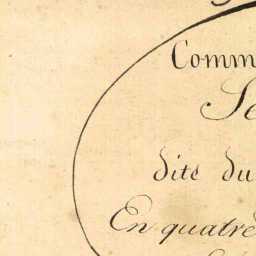 Comm
dite du
En quatre